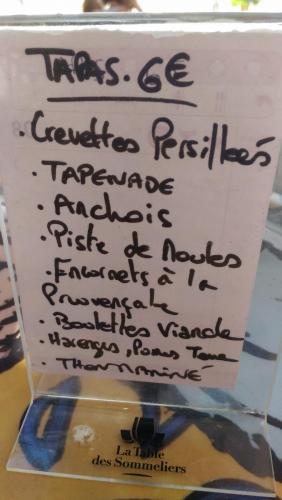 TAPAS. 6€
. Crevettes Persillées
. TAPENADE
. Anchois
. Piste de Moules
. Encornets à la
Provençale
. Boulettes Viande
. Harengs, Pomme Terre
. Thon Mariné
La Table
des Sommeliers